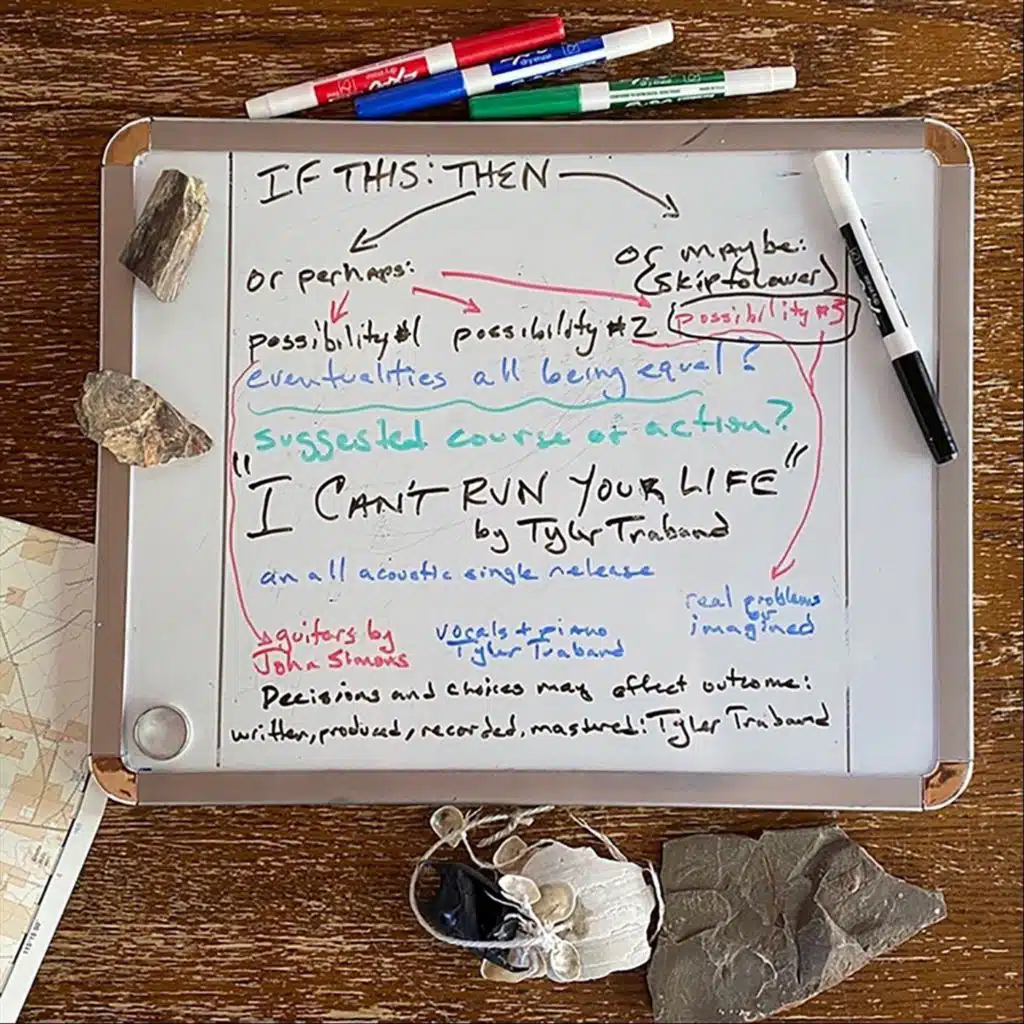 IF THIS: THEN
or maybe:
(skip to lower)
or perhaps:
possibility #1 possibility #2 possibility #3
eventualities all being equal?
suggested course of action?
"I CAN'T RUN YOUR LIFE"
by Tyler Traband
an all acoustic single release
real problems
or
imagined
guitars by
John Simons
vocals + piano
Tyler Traband
Decisions and choices may affect outcome:
written, produced, recorded, mastered: Tyler Traband
EXPO